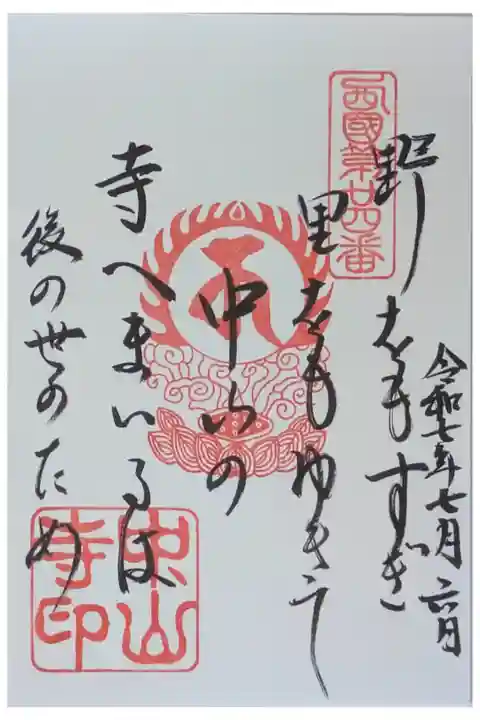 西國第廿四番
令和七年七月六日
野をもすぎ
里をもゆきて
中山の
寺へまいるは
後の世のため
中山寺印